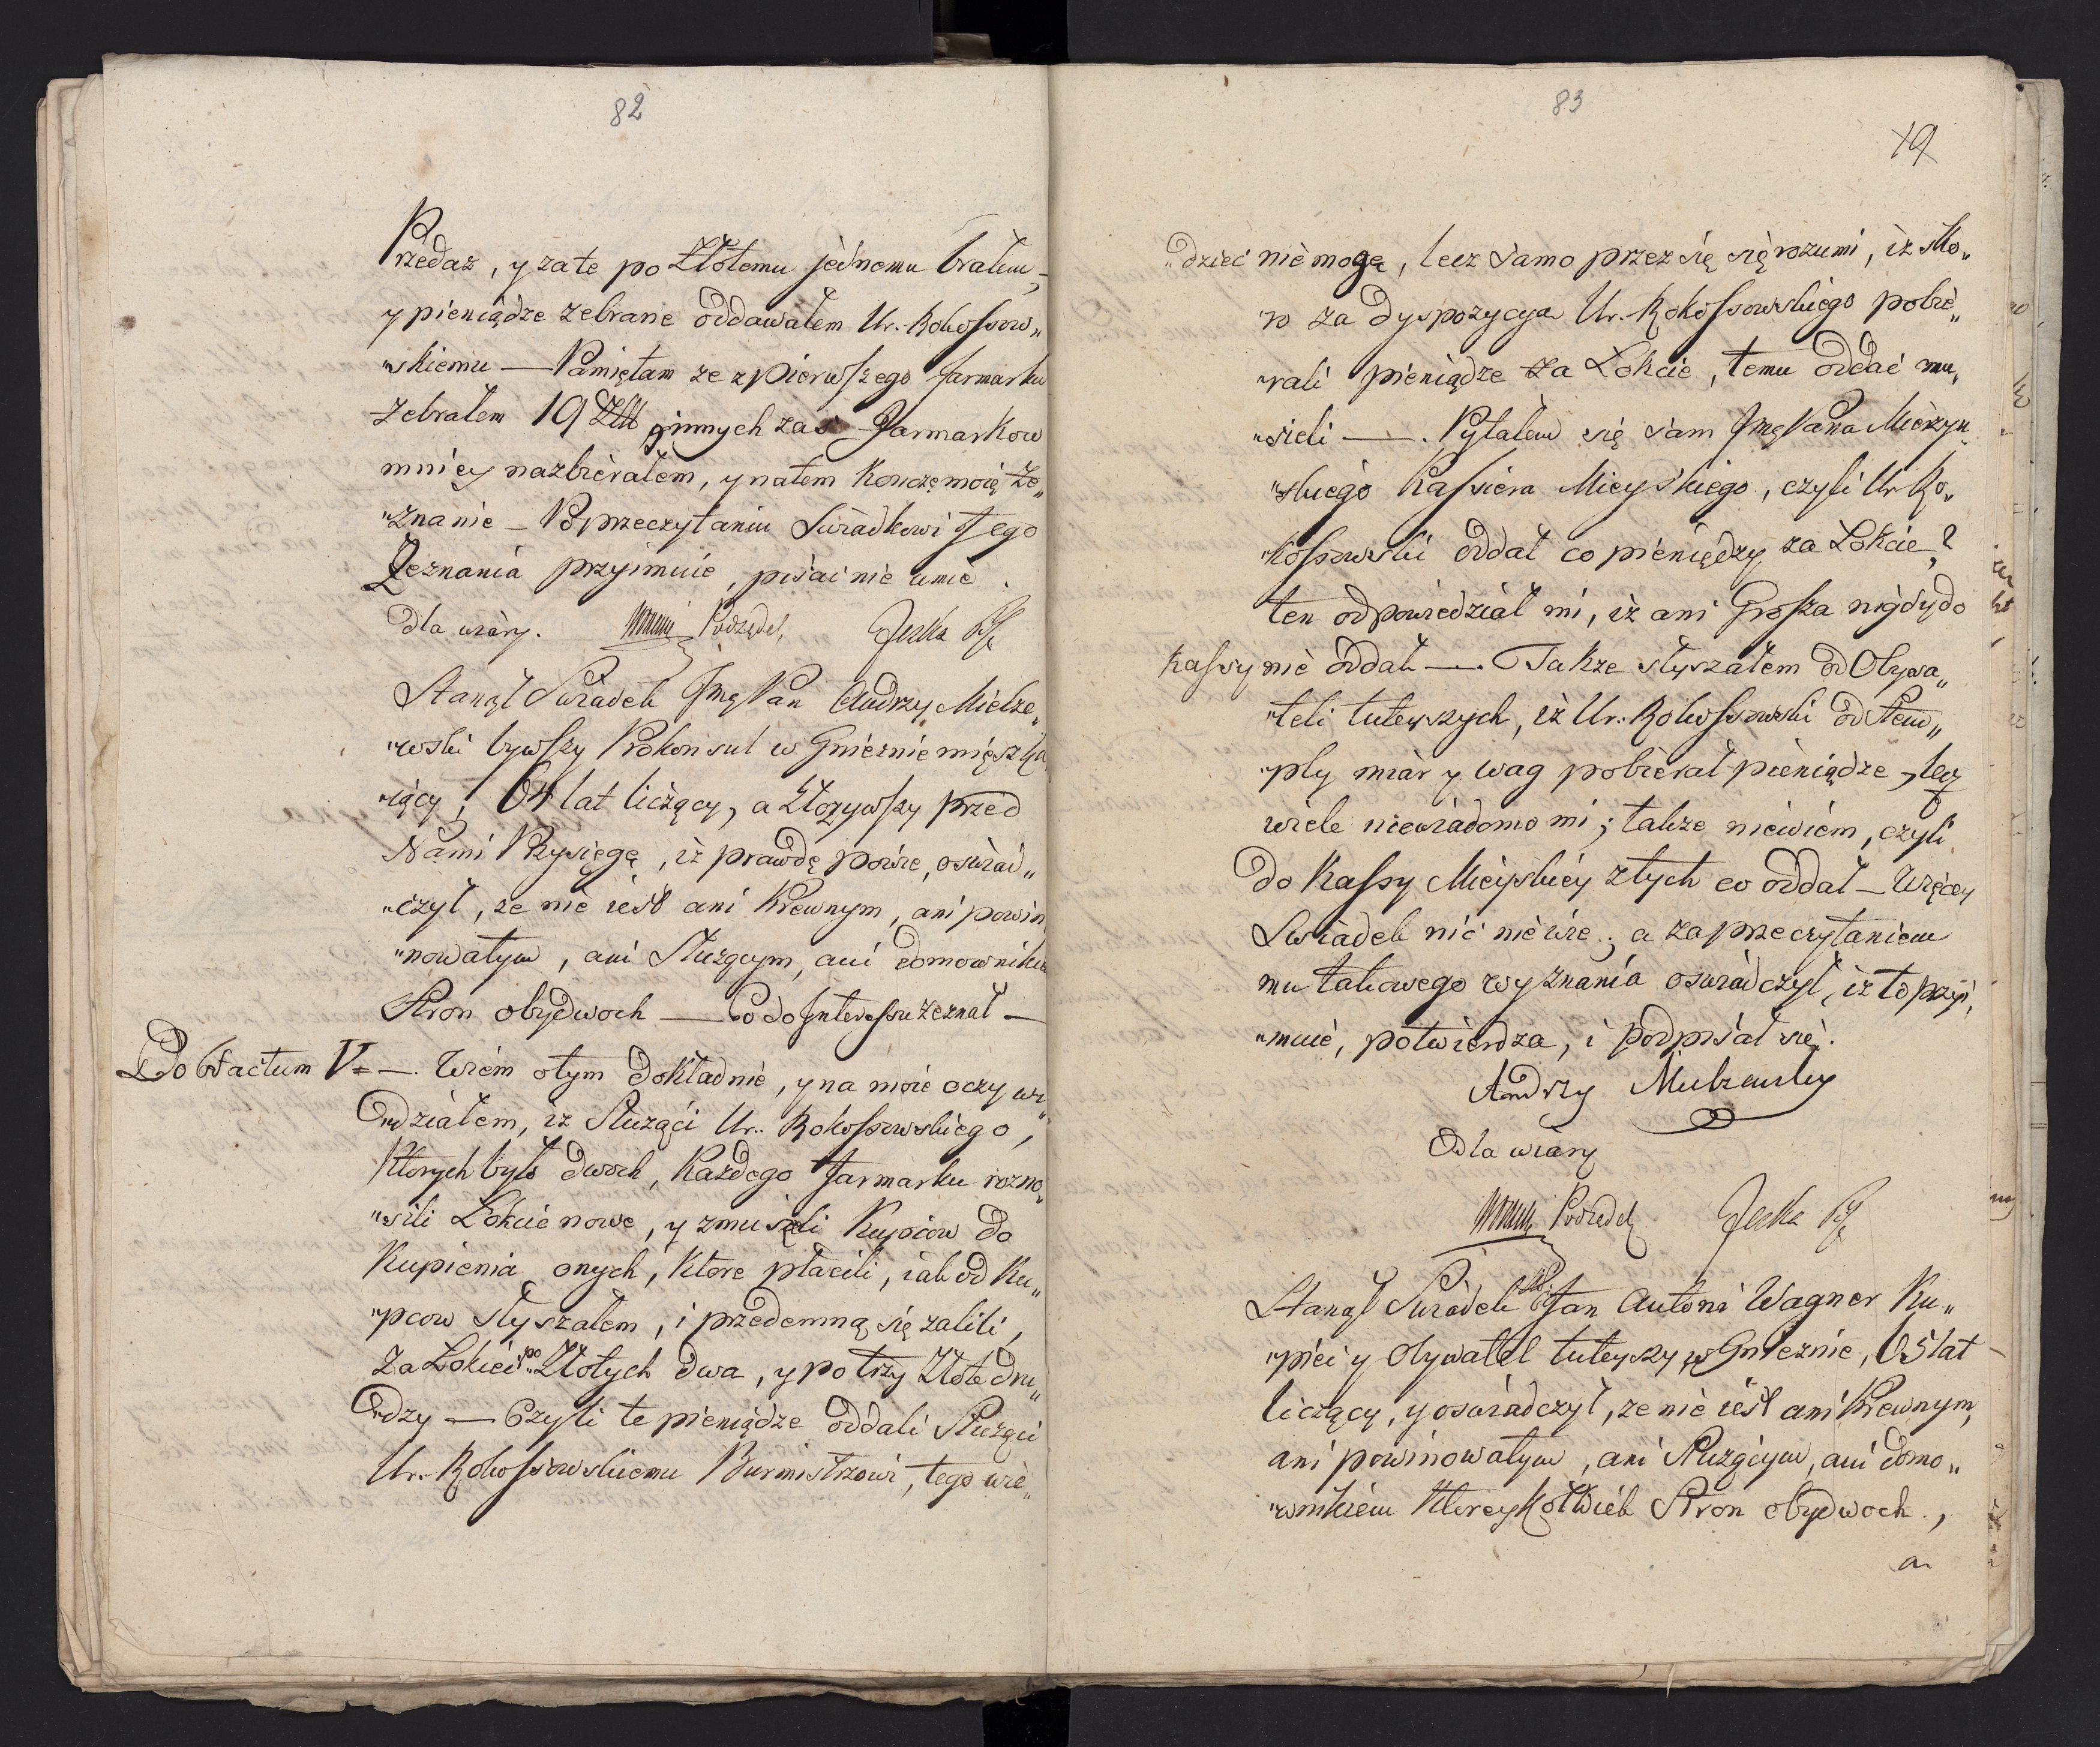 82
Przedaż, y za te po Złotemu jednemu brałem,
y pieniądze zebrane oddawałem Ur. Rokossow„
„skiemu — Pamiętam ze z pierwszego Jarmarku
zebrałem 19 Złł z innych zaś Jarmarkow
mniey nazbierałem, y natem kończę moię Ze„
„znanie — Po przeczytaniu Swiadkowi tego
Zeznania przyimuie, pisać nie umie.
dla wiary. Podsędek Jeska
Stanął Swiadek Jmę Pan Andrzy Mielże„
„wski bywszy Prokonsul w Gnieznie mięszka
„iący, 64 lat liczący, a złożywszy przed
Nami Przysięgę, iż prawdę powie, oswiad„
„czył, ze nie iest ani Krewnym, ani powin
„nowatym, ani Służącym, ani domownikiem
Stron obydwoch — Co do Interessu zeznał —
Do Factum V. = —. Wiem o tym dokładnie, y na moie oczy wi„
„działem, iz Służąci Ur. Rokossowskiego,
Ktorych było dwoch, Każdego Jarmarku rozno„
„sili Łokcie nowe, y zmusieli Kupcow do
Kupienia onych, Ktore płacili, iak od Ku„
„pcow słyszałem, i przedemną się zalili,
Za Łokieć po Złotych dwa, y po trzy Złote dru„
„dzy — Czyli te pieniądze oddali Służąci
Ur. Rokossowskiemu Burmistrzowi, tego wie„
83
19
„dzieć nie mogę, lecz samo przez się się rozumi, iż kto„
„ro za dyspozycyą Ur. Rokossowskiego pobie„
„rali pieniądze za Łokcie, temu oddać mu„
„sieli —. Pytałem się sam Jmę Pana Mierzyn„
„skiego Kassiera Mieyskiego, czyli Ur. Ro„
„kossowski oddał co pieniędzy za Łokcie?
ten odpowiedział mi, iż ani Grosza nigdy do
Kassy nie oddał —. Takze słyszałem od Obywa„
„teli tuteyszych, iż Ur. Rokossowski od Stem„
„ply miar y wag pobierał pieniądze, lecz
wiele niewiadomo mi; takze niewiem, czyli
do Kassy Mieyskiey z tych co oddał — Więcey
Swiadek nic nie wie; a za przeczytaniem
mu takowego wyznania oswiadczył, iż to przyi„
„muie, potwierdza, i podpisał się.
Andrzy Mielzewsky
dla wiary
Podsędek Jeska
Stanął Swiadek Jan Antoni Wagner Ku„
„piec y Obywatel tuteyszy w Gnieznie, 65 lat
liczący, y oswiadczył, ze nie iest ani Krewnym,
ani powinowatym, ani Służącym, ani domo„
„wnikiem Ktoreykolwiek Stron obydwoch,
a